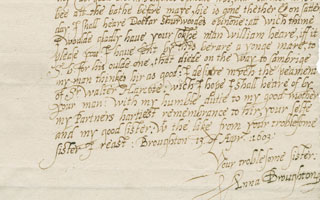 bee att the bathe before mare bie is gone thether & on satter
day: I shall heare Docter opinone: att with thine
I woulde gladly have your sonne man william heare, if it
please you I have att by this bearare a yonge mare, to
b for his oulde one, that diede on the way to cambrige
my man thinks hir as good: I desire myen the peament
of Sr Walter Harcote: with I hope I shall heare of by
your man: with my humbe dutie to my good mother
my Partners hartiest remembrance to hir, your selfe
and my good sister: & the like from your troblesome
sister I reast: Broughton 13 of Apr. 1603:
Your troblesome sister.
Anna Broughton